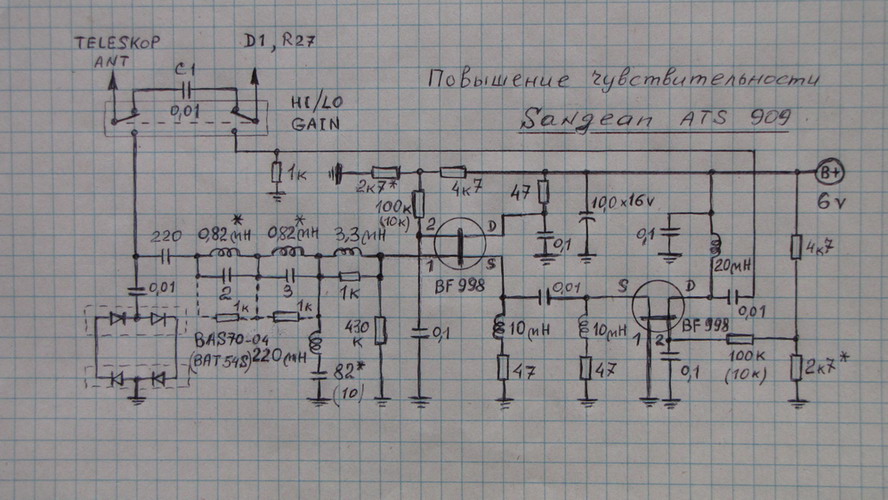 TELESKOP
ANT
D1, R27
C1
0,01
HI/LO
GAIN
Повышение чувствительности
Sangean ATS 909
1к
2к7*
4к7
47
10,0х16v
B+
6v
100к
(10к)
2
D
220
0,82мН*
0,82мН*
3,3мН
1
S
BF 998
0,1
0,1
20мН
4к7
0,01
2
3
1к
0,01
S
D
0,01
1к
1к
BF 998
BAS70-04
(BAT54S)
220мН
430
к
0,1
10мН
10мН
1
2
100к
(10к)
82*
(10)
47
47
0,1
2к7*